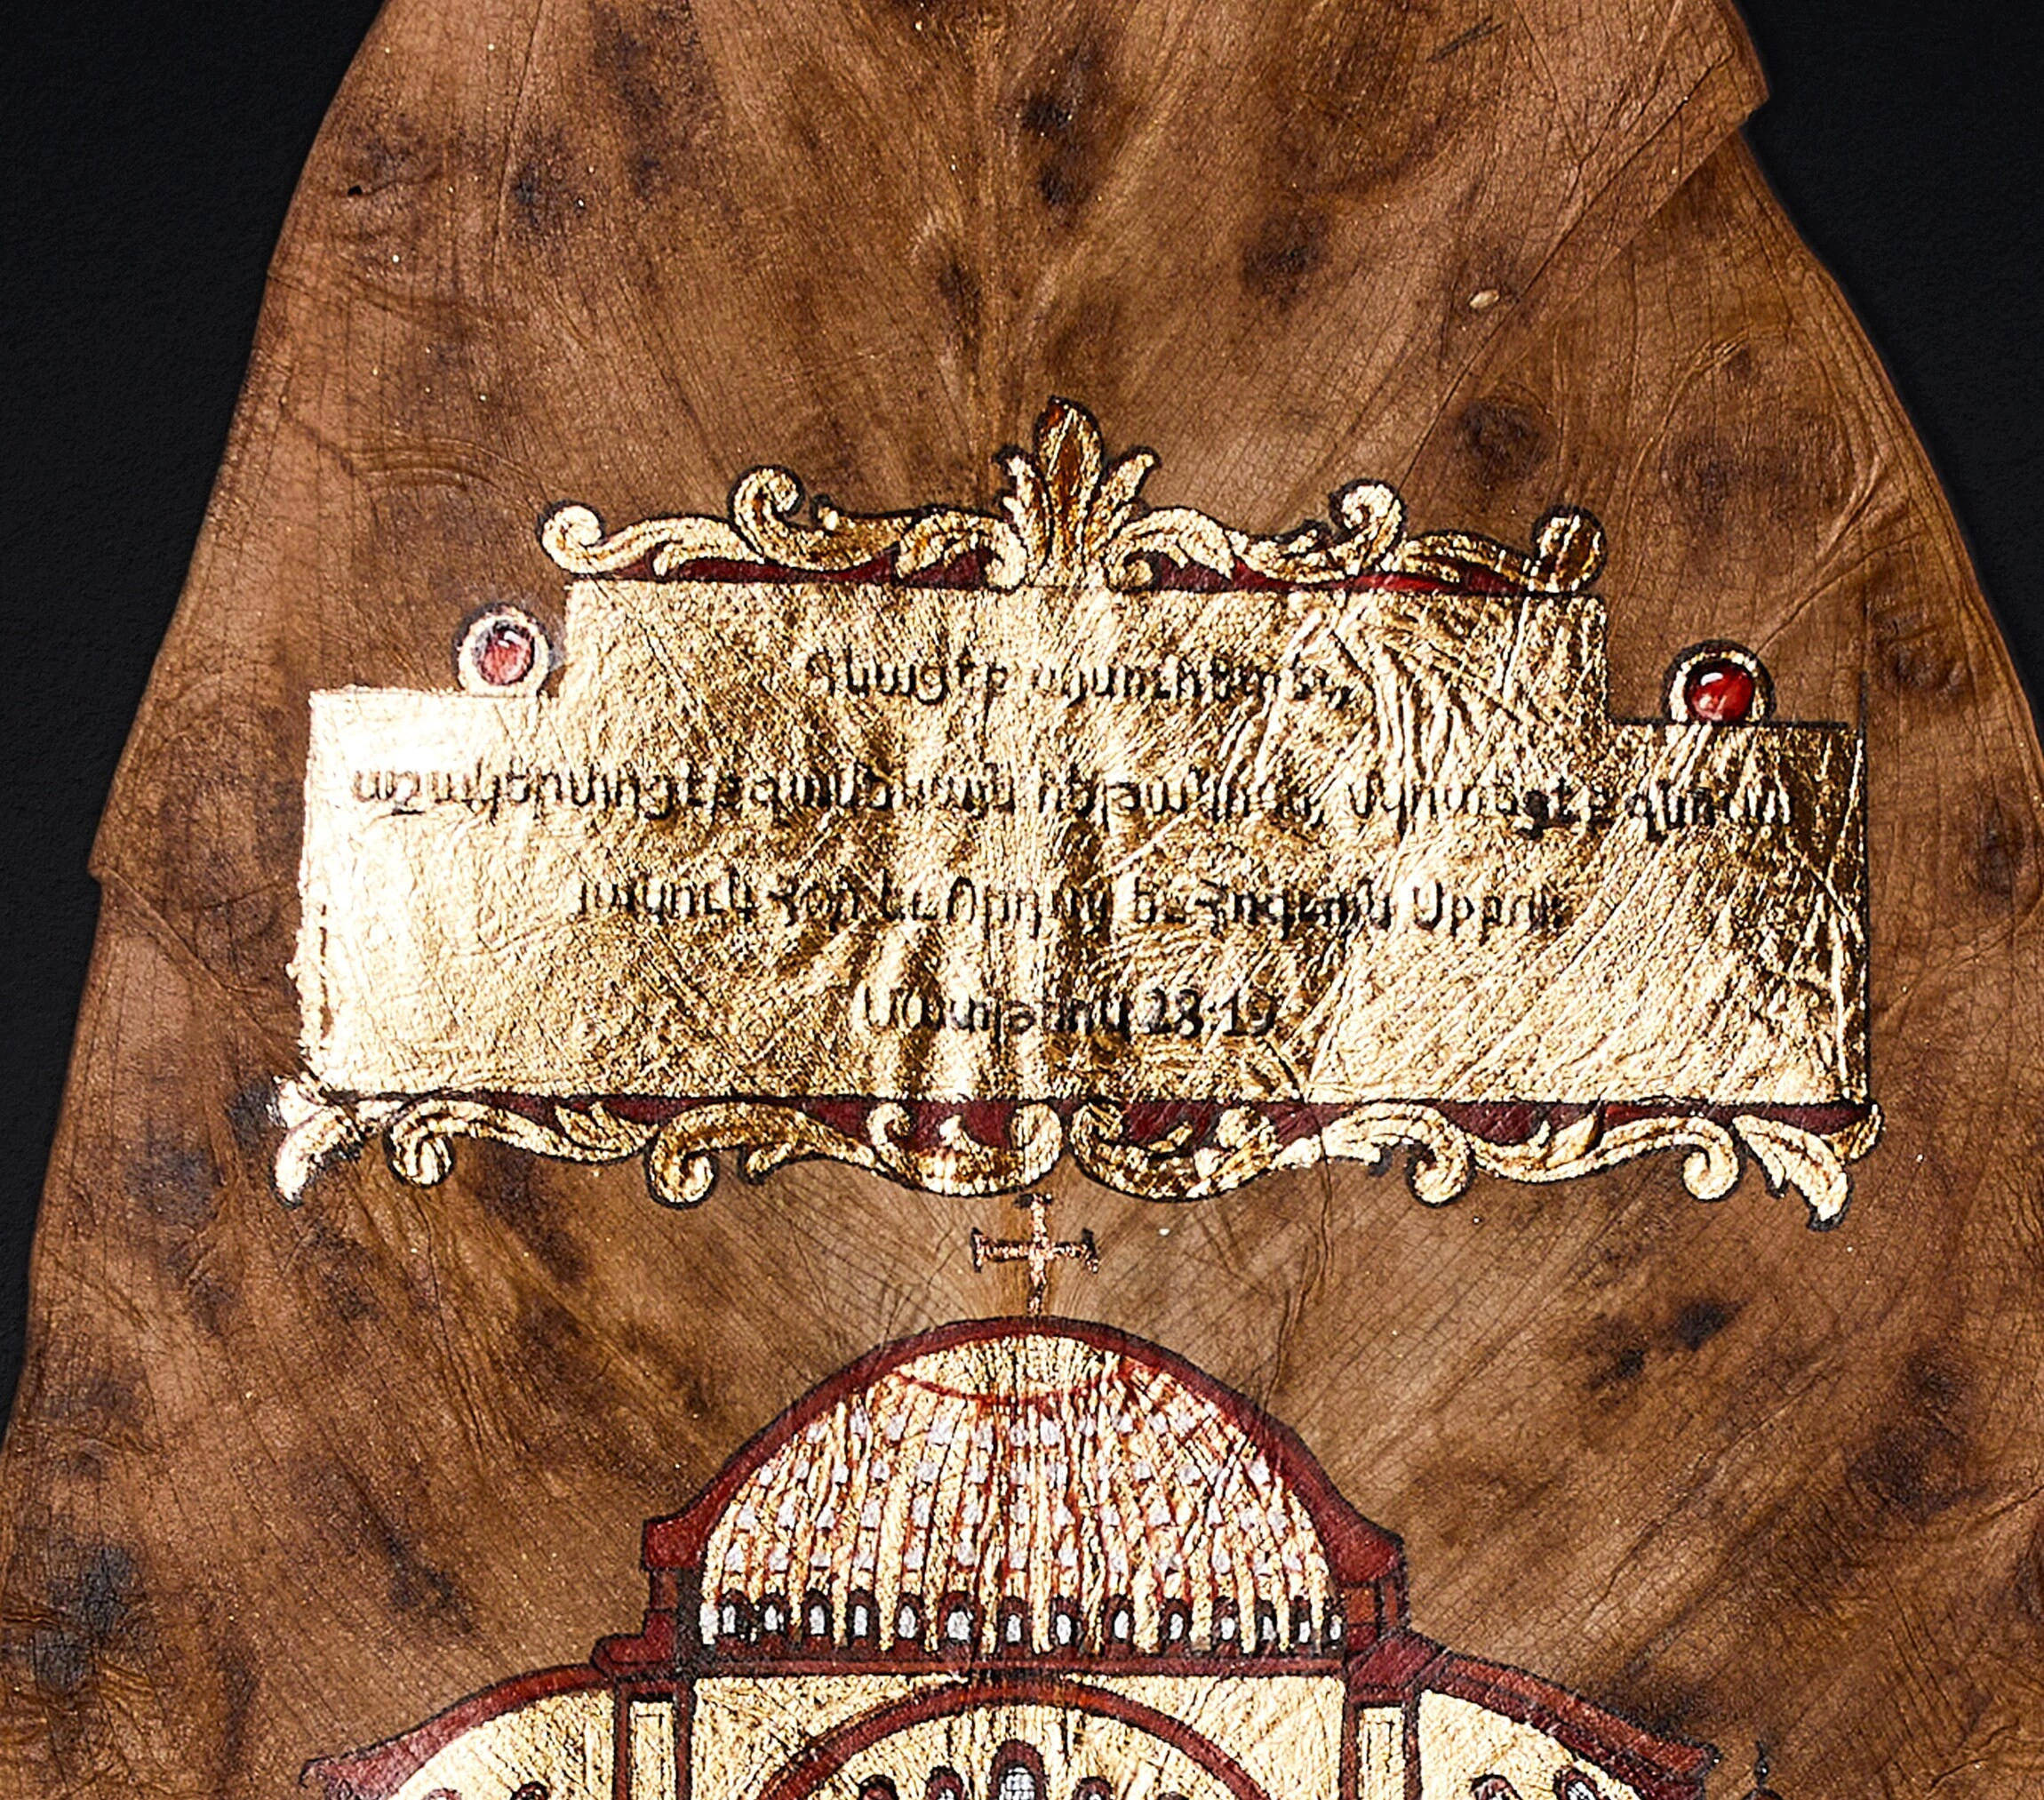 Գնացէք այսուհետեւ,
աշակերտեցէք զամենայն հեթանոսս, մկրտեցէք զնոսա
յանուն Հօր եւ Որդւոյ եւ Հոգւոյն Սրբոյ։
Մատթէոս 28:19